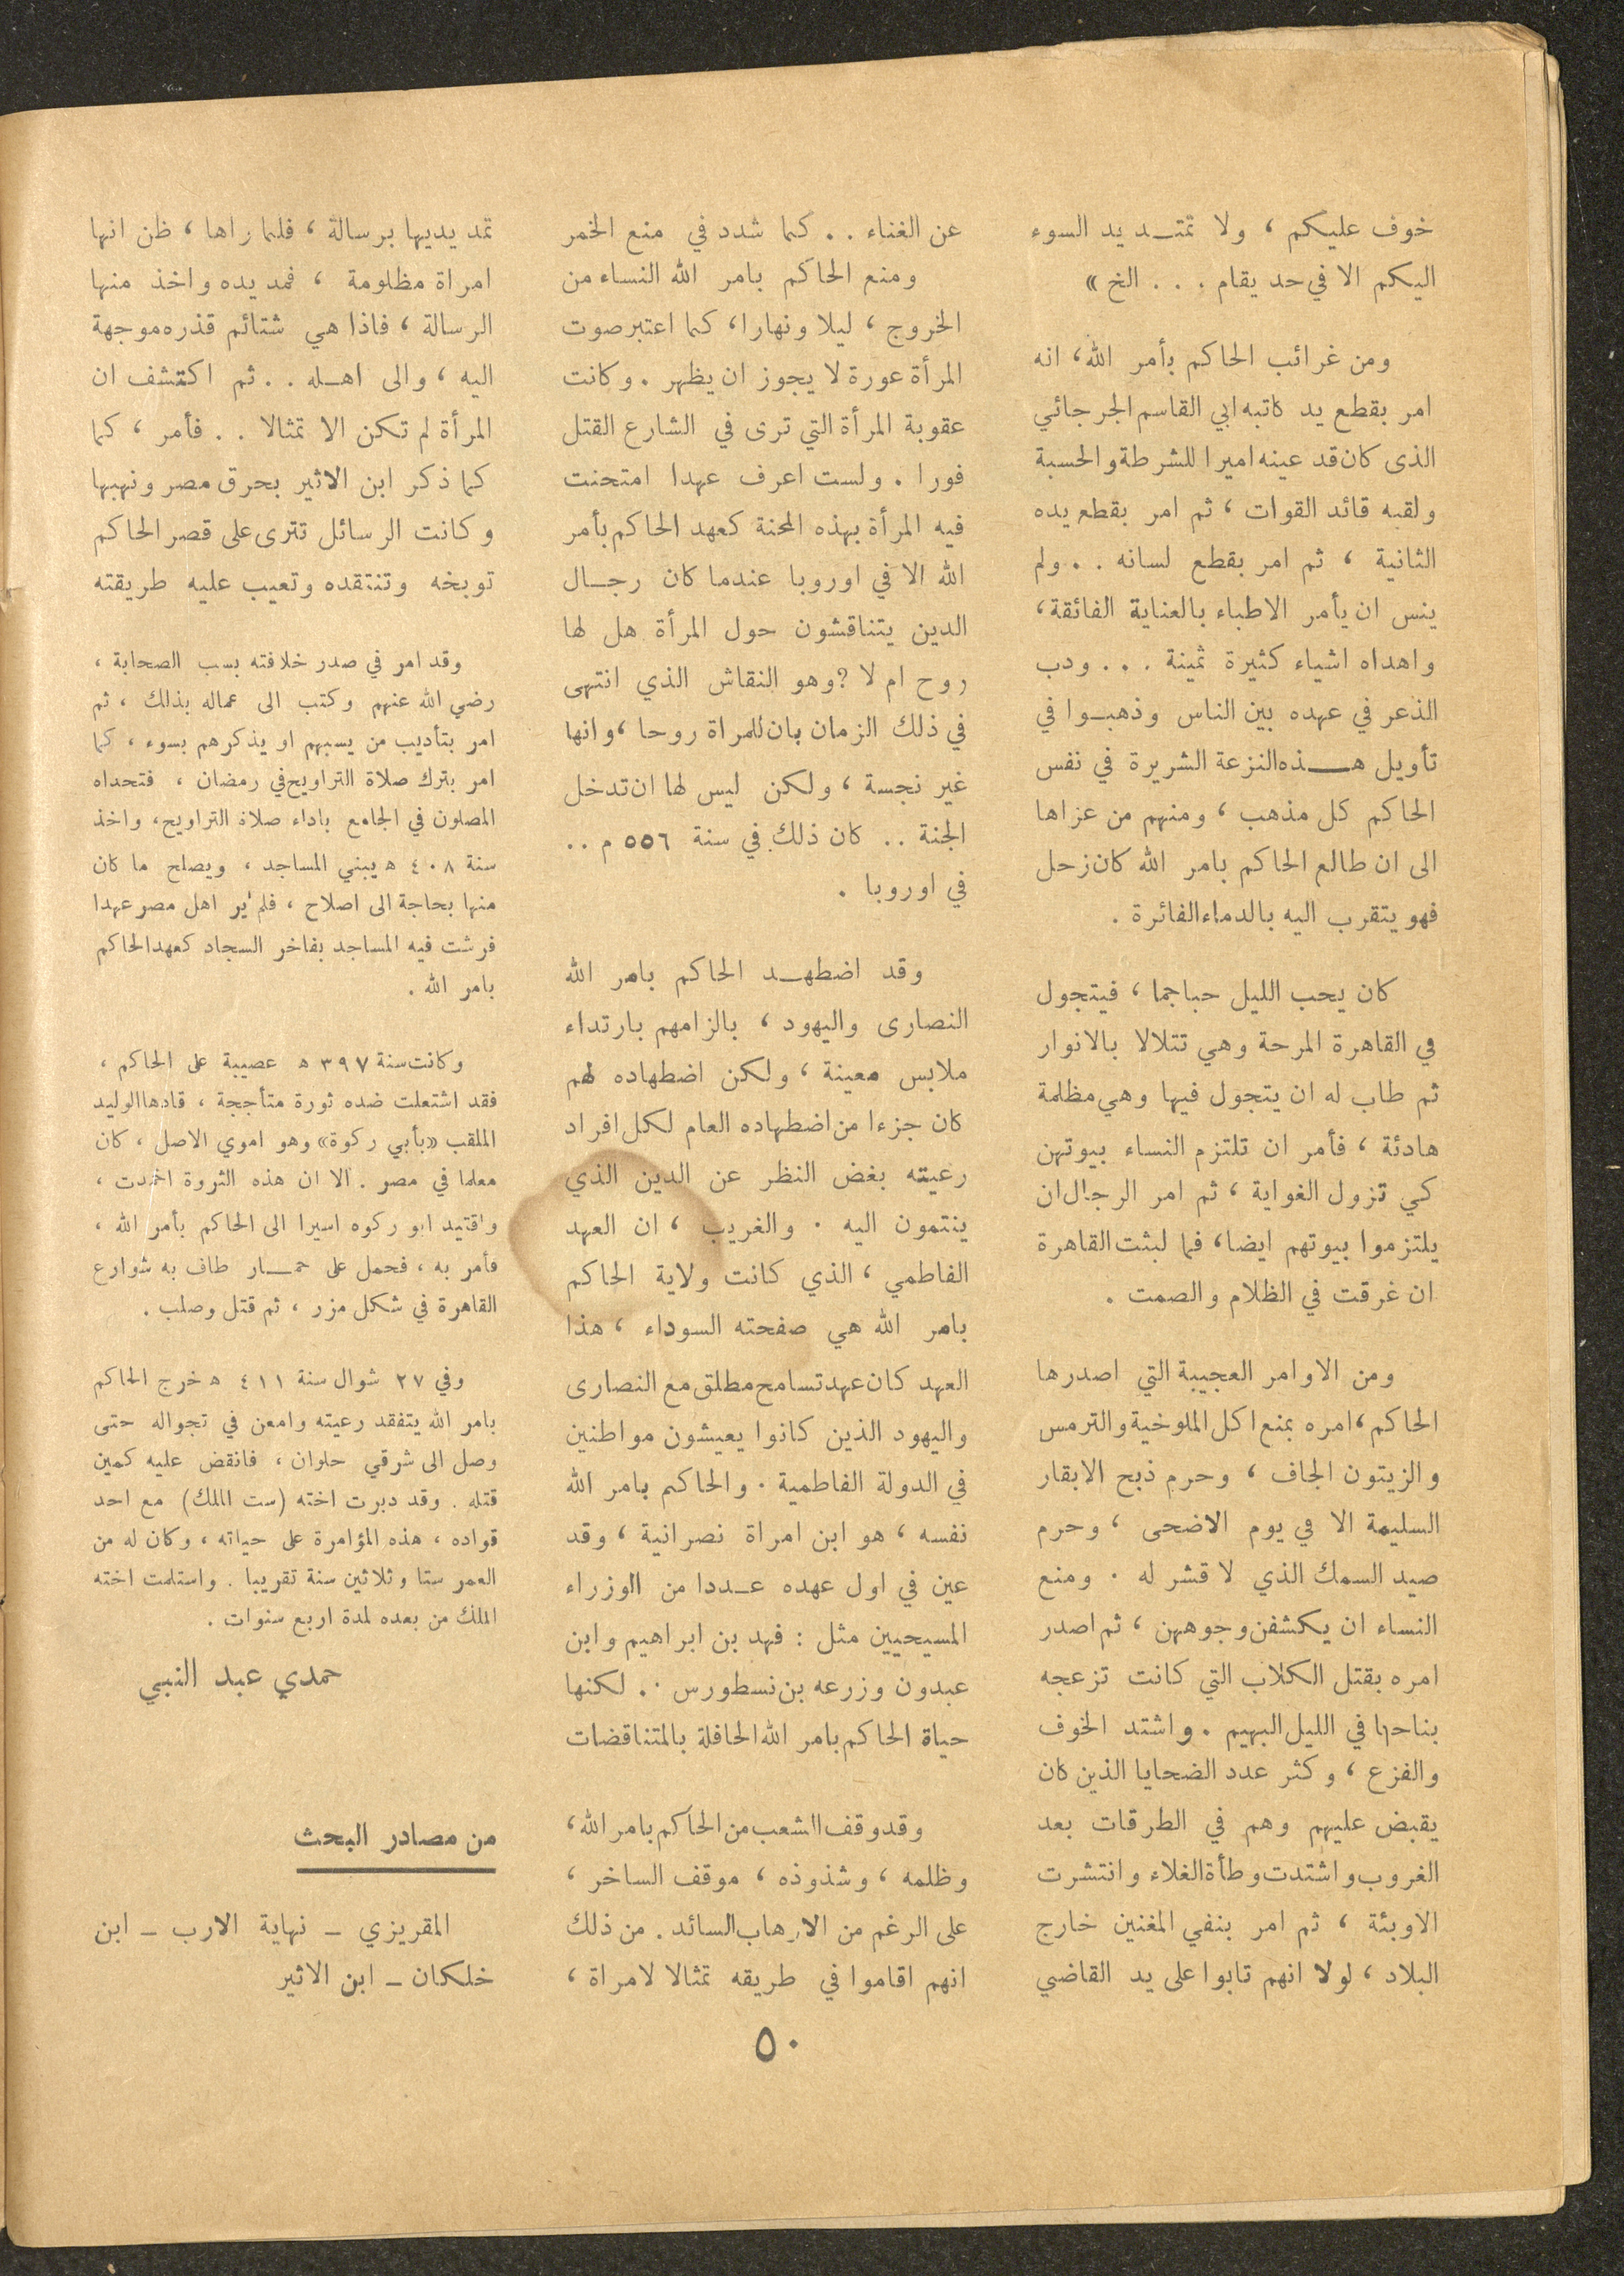 خوف عليكم ، ولا تمتـد يد السوء
اليكم الا في حد يقام . . . الخ »
ومن غرائب الحاكم بأمر الله ، انه
امر بقطع يد كاتبه ابي القاسم الجرجائي
الذى كان قد عينه اميرا للشرطة والحسبة
ولقبه قائد القوات ، ثم امر بقطع يده
الثانية ، ثم امر بقطع لسانه . . ولم
ينس ان يأمر الاطباء بالعناية الفائقة ،
واهداه اشياء كثيرة ثمينة . . . ودب
الذعر في عهده بين الناس وذهبـوا في
تأويل هـــذه النزعة الشريرة في نفس
الحاكم كل مذهب ، ومنهم من عزاها
الى ان طالع الحاكم بامر الله كان زحل
فهو يتقرب اليه بالدماء الفائرة .
كان يحب الليل حبا جما ، فيتجول
في القاهرة المرحة وهي تتلالا بالانوار
ثم طاب له ان يتجول فيها وهي مظلمة
هادئة ، فأمر ان تلتزم النساء بيوتهن
كي تزول الغواية ، ثم امر الرجال ان
يلتزموا بيوتهم ايضا ، فما لبثت القاهرة
ان غرقت في الظلام والصمت .
ومن الاوامر العجيبة التي اصدرها
الحاكم ، امره بمنع اكل الملوخية والترمس
والزيتون الجاف ، وحرم ذبح الابقار
السليمة الا في يوم الاضحى ، وحرم
صيد السمك الذي لا قشر له . ومنع
النساء ان يكشفن وجوههن ، ثم اصدر
امره بقتل الكلاب التي كانت تزعجه
بناحها في الليل البهيم . واشتد الخوف
والفزع ، وكثر عدد الضحايا الذين كان
يقبض عليهم وهم في الطرقات بعد
الغروب واشتدت وطأة الغلاء وانتشرت
الاوبئة ، ثم امر بنفي المغنين خارج
البلاد ، لولا انهم تابوا على يد القاضي
عن الغناء . . كما شدد في منع الخمر
ومنع الحاكم بامر الله النساء من
الخروج ، ليلا ونهارا ، كما اعتبر صوت
المرأة عورة لا يجوز ان يظهر . وكانت
عقوبة المرأة التي ترى في الشارع القتل
فورا . ولست اعرف عهدا امتحنت
فيه المرأة بهذه المحنة كعهد الحاكم بأمر
الله الا في اوروبا عندما كان رجـال
الدين يتناقشون حول المرأة هل لها
روح ام لا ? وهو النقاش الذي انتهى
في ذلك الزمان بان للمراة روحا ، وانها
غير نجسة ، ولكن ليس لها ان تدخل
الجنة . . كان ذلك في سنة ٥٥٦ م . .
في اوروبا .
وقد اضطهـد الحاكم بامر الله
النصارى واليهود ، بالزامهم بارتداء
ملابس معينة ، ولكن اضطهاده لهم
كان جزءا من اضطهاده العام لكل افراد
رعيته بغض النظر عن الدين الذي
ينتمون اليه . والغريب ، ان العهد
الفاطمي ، الذي كانت ولاية الحاكم
بامر الله هي صفحته السوداء ، هذا
العهد كان عهد تسامح مطلق مع النصارى
واليهود الذين كانوا يعيشون مواطنين
في الدولة الفاطمية . والحاكم بامر الله
نفسه ، هو ابن امراة نصرانية ، وقد
عين في اول عهده عـددا من الوزراء
المسيحيين مثل : فهد بن ابراهيم وابن
عبدون وزرعه بن نسطورس . . لكنها
حياة الحاكم بامر الله الحافلة بالمتناقضات
وقد وقف الشعب من الحاكم بامر الله ،
وظلمه ، وشذوذه ، موقف الساخر ،
على الرغم من الارهاب السائد . من ذلك
انهم اقاموا في طريقه تمثالا لامراة ،
تمد يديها برسالة ، فلما راها ، ظن انها
امراة مظلومة ، فمد يده واخذ منها
الرسالة ، فاذا هي شتائم قذره موجهة
اليه ، والى اهـله . . ثم اكتشف ان
المرأة لم تكن الا تمثالا . . فأمر ، كما
كما ذكر ابن الاثير بحرق مصر ونهبها
وكانت الرسائل تترى على قصر الحاكم
توبخه وتنتقده وتعيب عليه طريقته
وقد امر في صدر خلافته بسب الصحابة ،
رضي الله عنهم وكتب الى عماله بذلك ، ثم
امر بتأديب من يسبهم او يذكرهم بسوء ، كما
امر بترك صلاة التراويح في رمضان ، فتحداه
المصلون في الجامع باداء صلاة التراويح ، واخذ
سنة ٤٠٨ ه يبني المساجد ، ويصلح ما كان
منها بحاجة الى اصلاح ، فلم ير اهل مصر عهدا
فرشت فيه المساجد بفاخر السجاد كعهد الحاكم
بامر الله .
وكانت سنة ٣٩٧ ه عصيبة على الحاكم ،
فقد اشتعلت ضده ثورة متأججة ، قادها الوليد
الملقب «بأبي ركوة» وهو اموي الاصل ، كان
معلما في مصر . الا ان هذه الثروة اخمدت ،
واقتيد ابو ركوه اسيرا الى الحاكم بأمر الله ،
فأمر به ، فحمل على حمـــار طاف به شوارع
القاهرة في شكل مزر ، ثم قتل وصلب .
وفي ٢٧ شوال سنة ٤١١ ه خرج الحاكم
بامر الله يتفقد رعيته وامعن في تجواله حتى
وصل الى شرقي حلوان ، فانقض عليه كمين
قتله . وقد دبرت اخته (ست الملك) مع احد
قواده ، هذه المؤامرة على حياته ، وكان له من
العمر ستا وثلاثين سنة تقريبا . واستلمت اخته
الملك من بعده لمدة اربع سنوات .
حمدي عبد النبي
من مصادر البحث
المقريزي – نهاية الارب – ابن
خلكان – ابن الاثير
٥٠